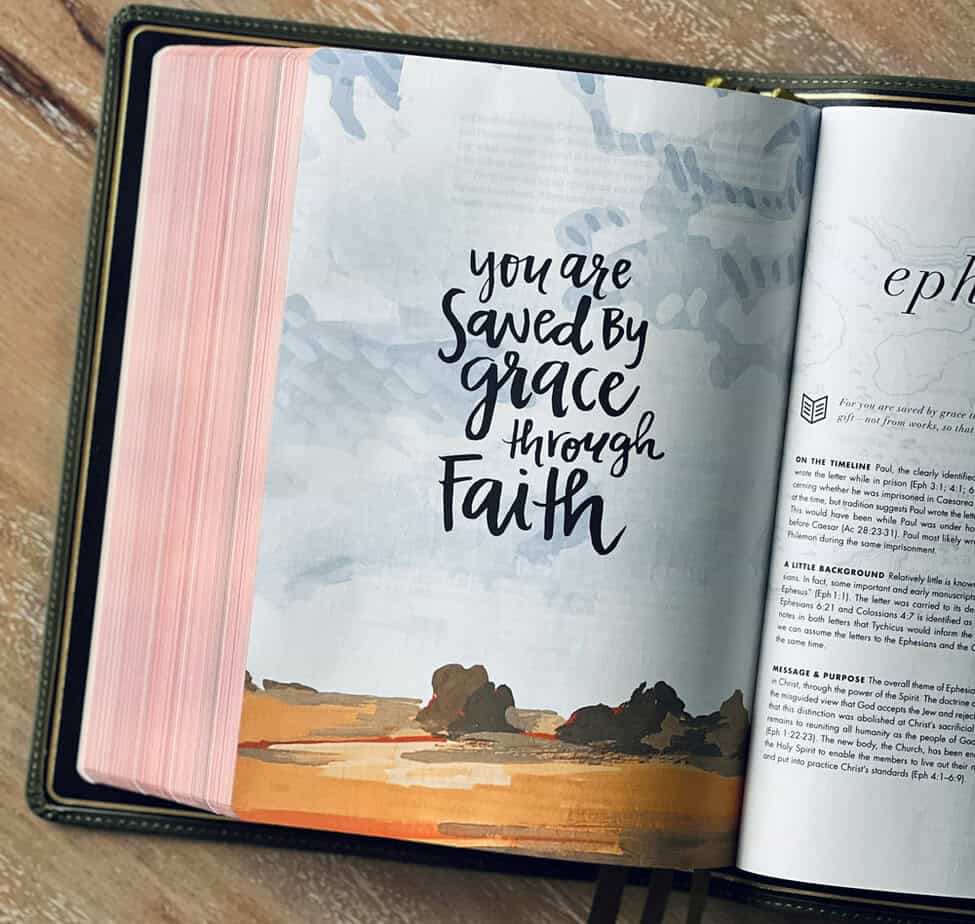 you are
Saved By
grace
through
Faith
eph
For you are saved by grace
gift—not from works, so that
ON THE TIMELINE Paul, the clearly identified
wrote the letter while in prison (Eph 3:1; 4:1; 6
cerning whether he was imprisoned in Caesarea
at the time, but tradition suggests Paul wrote the
This would have been while Paul was under
before Caesar (Ac 28:23-31). Paul most likely
Philemon during the same imprisonment.
A LITTLE BACKGROUND Relatively little is
sians. In fact, some important and early
Ephesus" (Eph 1:1). The letter was carried to its
Ephesians 6:21 and Colossians 4:7 is identified as
notes in both letters that Tychicus would inform the
we can assume the letters to the Ephesians and the
the same time.
MESSAGE & PURPOSE The overall theme of
in Christ, through the power of the Spirit. The doctrine
the misguided view that God accepts the Jew and
that this distinction was abolished at Christ's
remains to reuniting all humanity as the people of
(Eph 1:22-23). The new body, the Church, has been
the Holy Spirit to enable the members to live out their
and put into practice Christ's standards (Eph 4:1-6:9).